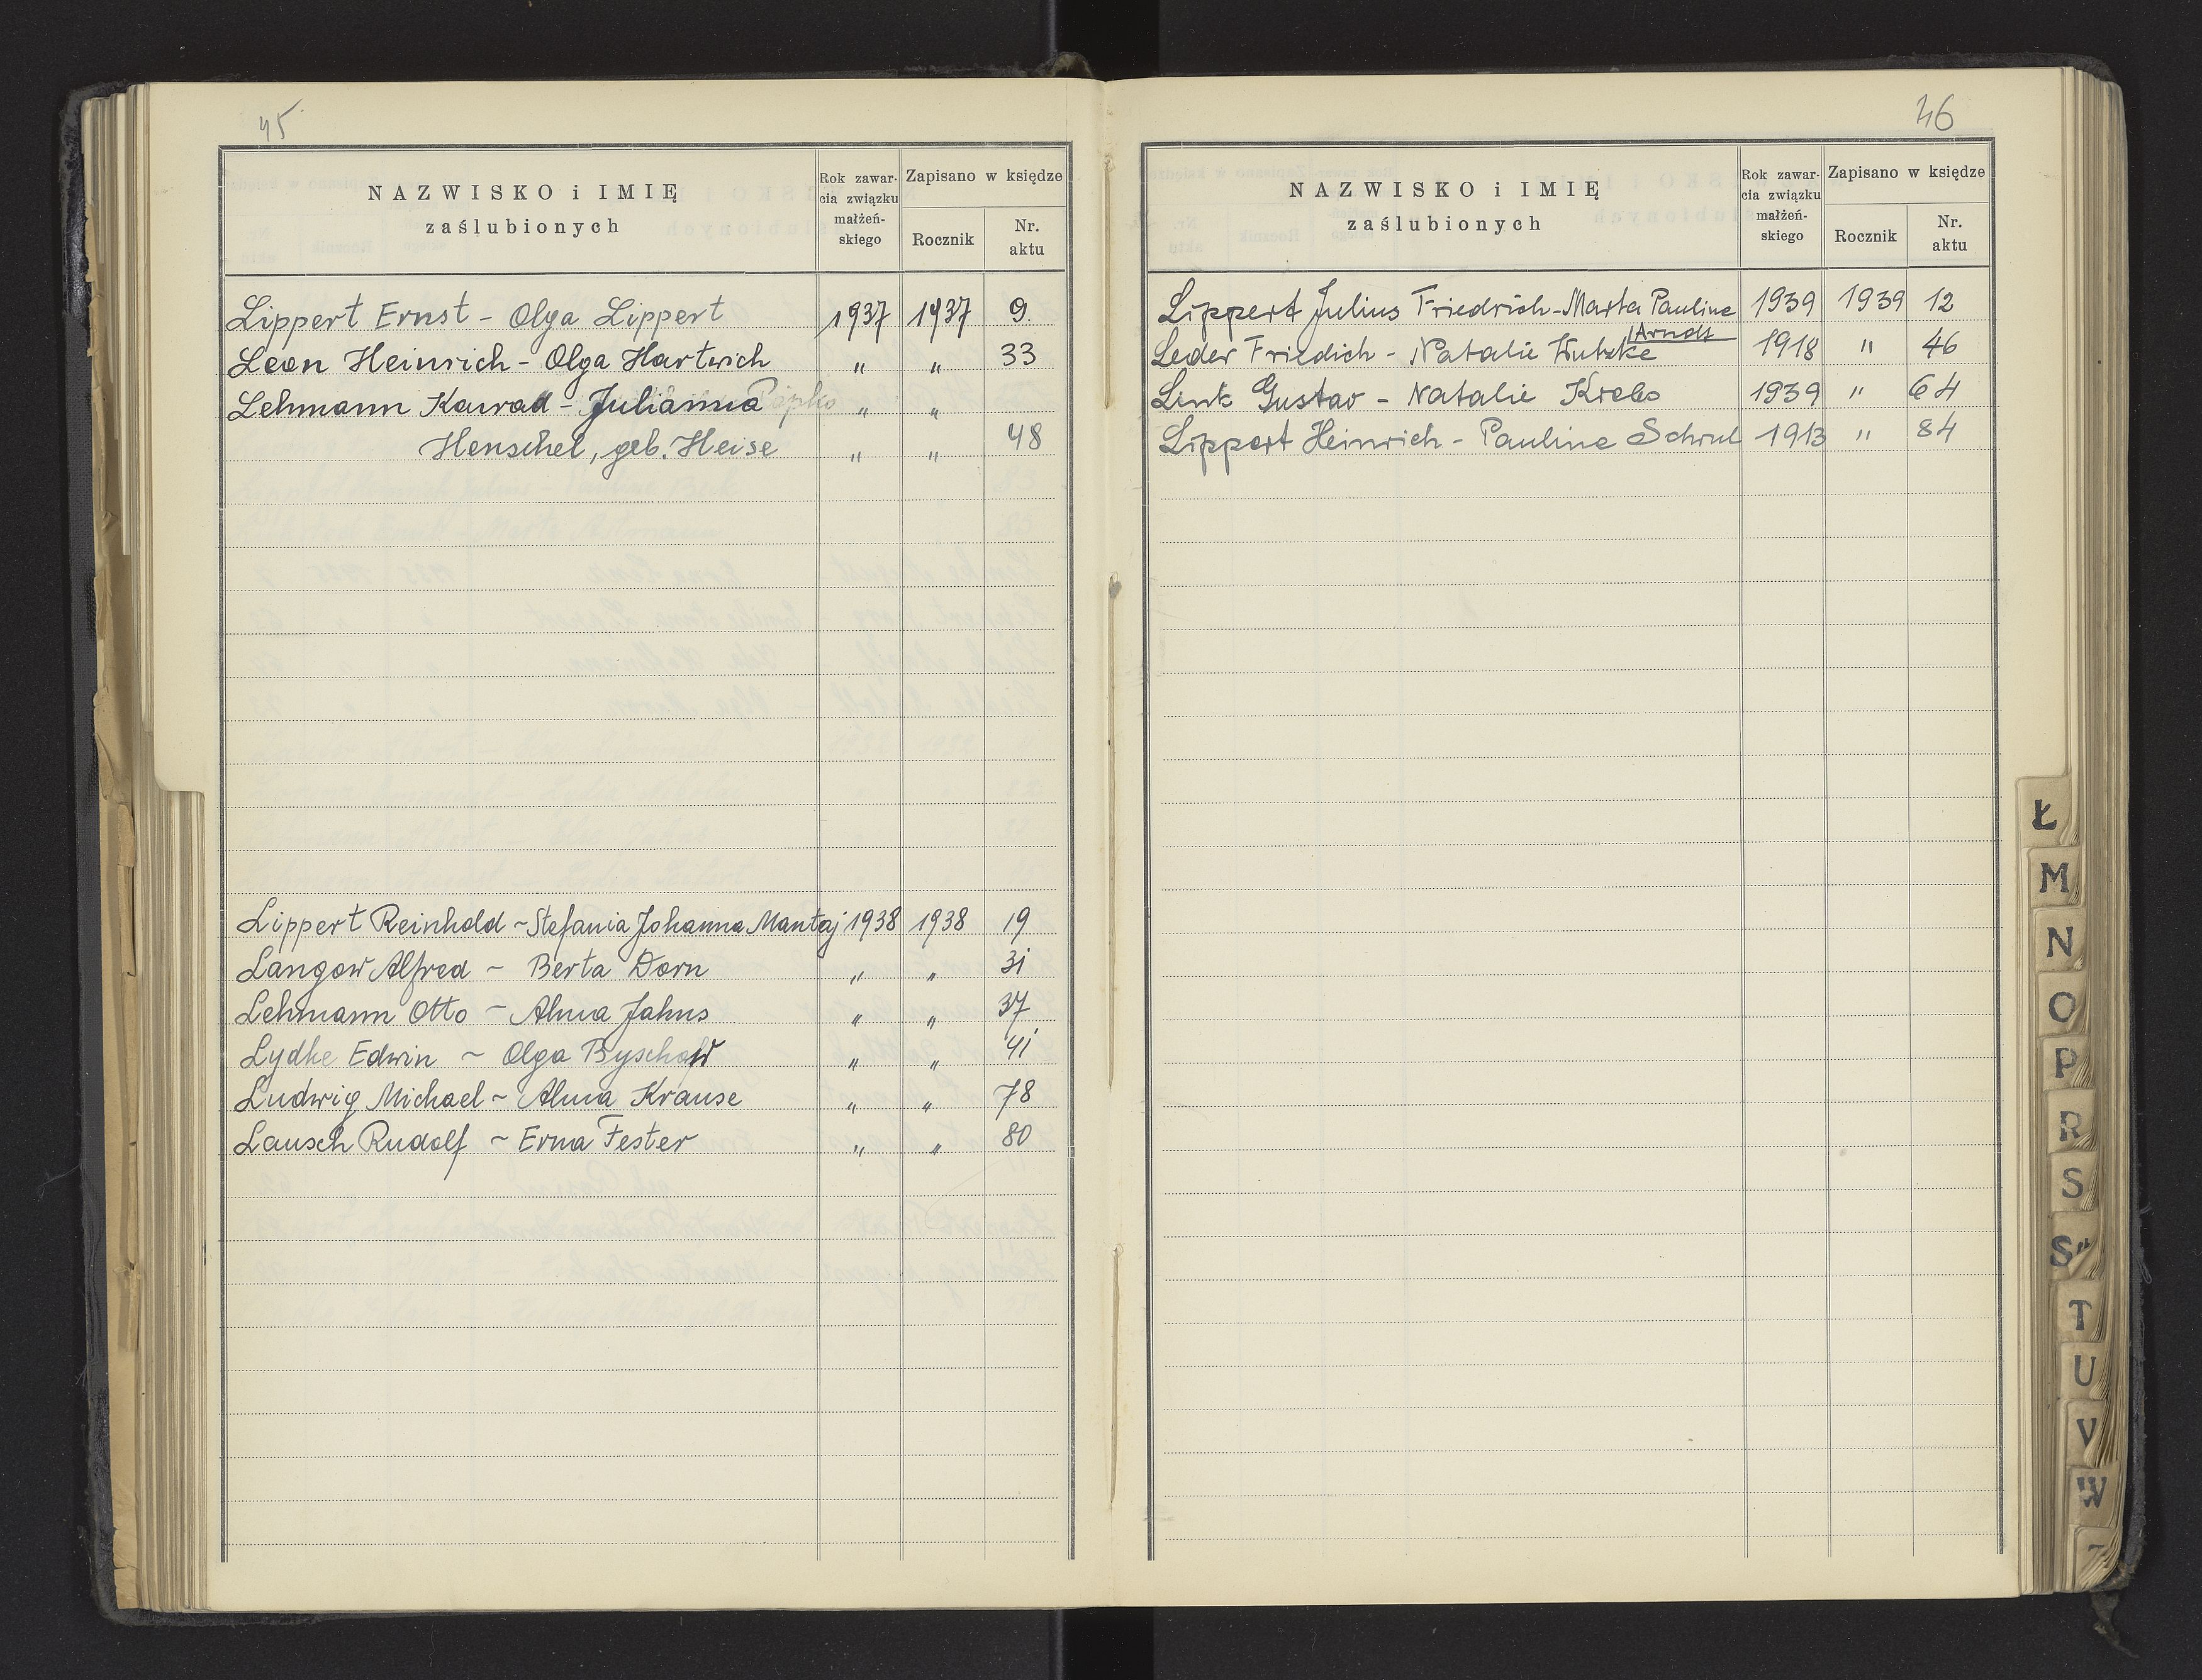 45
NAZWISKO i IMIĘ
zaślubionych
Rok zawar-
cia związku
małżeń-
skiego
Zapisano w księdze
Rocznik
Nr.
aktu
Lippert Ernst - Olga Lippert 1937 1937 9.
Leon Heinrich - Olga Hartwich " " 33
Lehmann Konrad - Julianna " "
Henschel, geb. Heise " " 48
Lippert Reinhold ~ Stefania Johanna Mantaj 1938 1938 19
Langow Alfred ~ Berta Dorn " " 31
Lehmann Otto ~ Alma Jahns " " 37
Lydke Edwin ~ Olga " " 41
Ludwig Michael ~ Alma Krause " " 78
Lausch Rudolf ~ Erna Fester " " 80
46
NAZWISKO i IMIĘ
zaślubionych
Rok zawar-
cia związku
małżeń-
skiego
Zapisano w księdze
Rocznik
Nr.
aktu
Lippert Julius Friedrich - Marta Pauline 1939 1939 12
Arndt
Leder Friedich - Natalie 1918 " 46
Link Gustav - Natalie Krebs 1939 " 64
Lippert Heinrich - Pauline 1913 " 84
Ł
M
N
O
P
R
S
S"
T
U
V
W